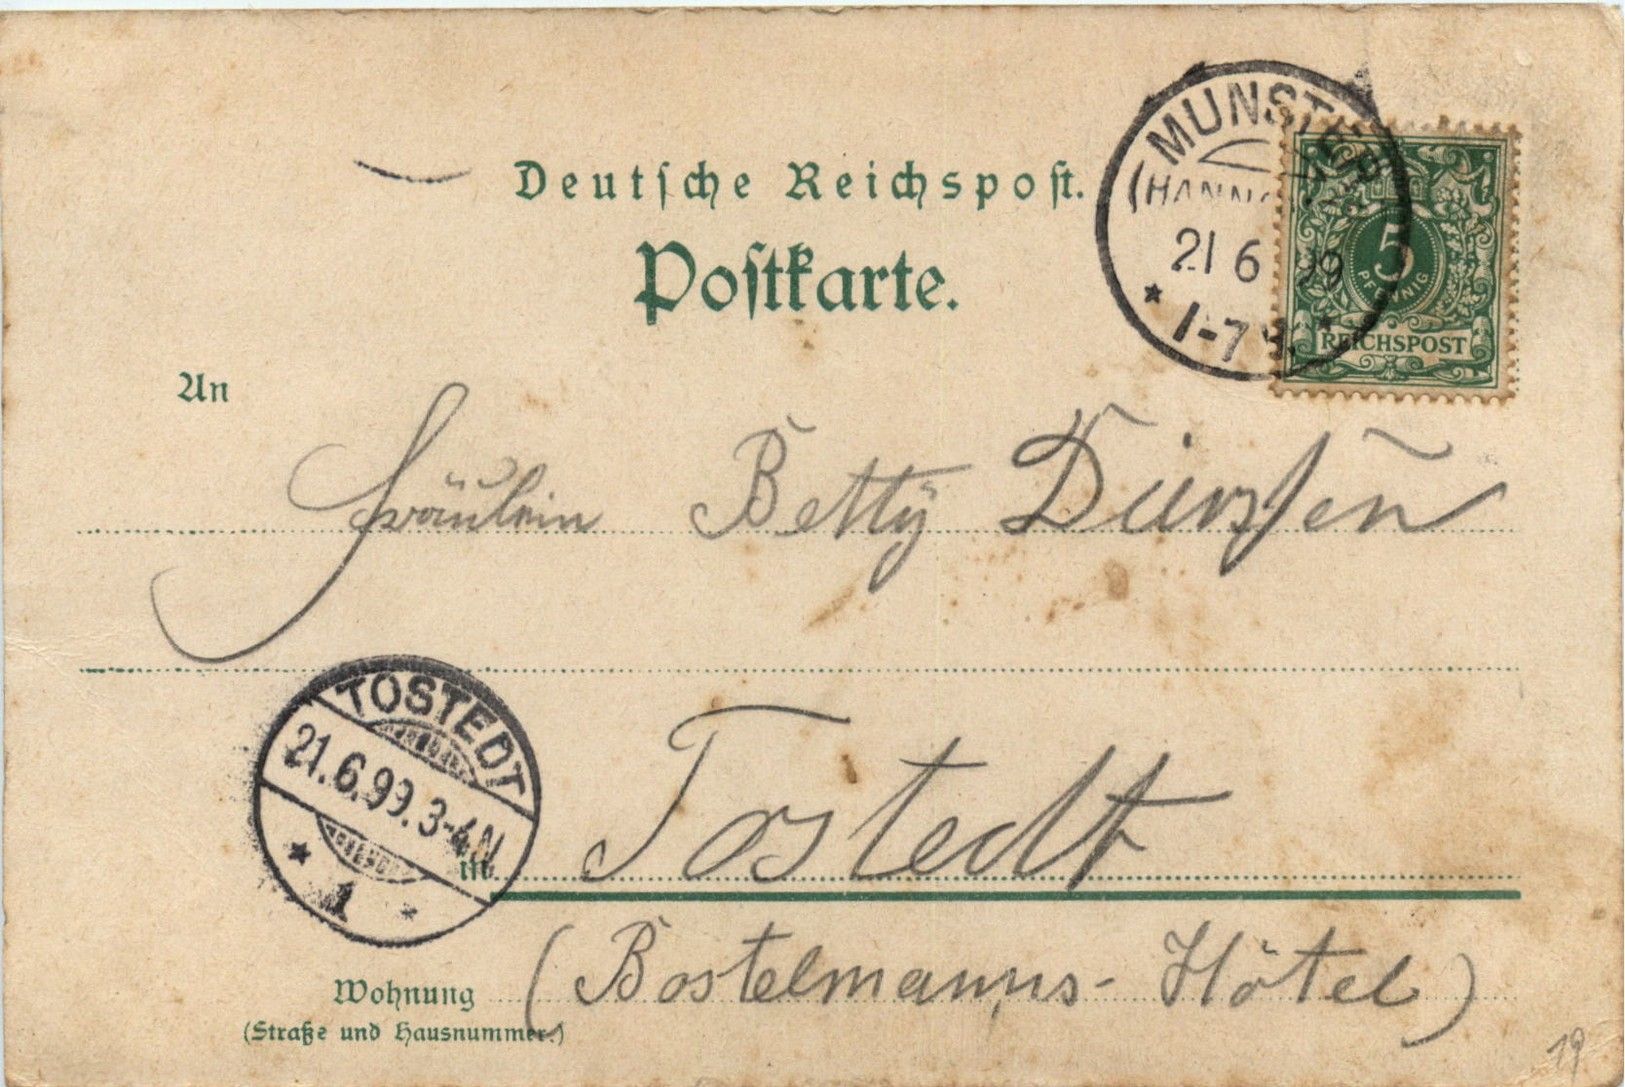 Deutsche Reichspost.
Postkarte.
MUNSTER
(HANNOVER)
21 6 99
1-7 N.
5
PFENNIG
REICHSPOST
An
Fräulein Betty Dieren
TOSTEDT
21.6.99.3-4N
1
in Tostedt
Wohnung (Bostelmanns-Hôtel)
(Straße und Hausnummer.)
19